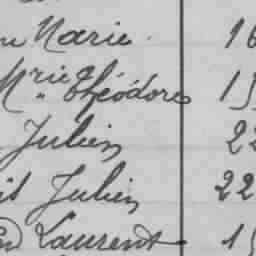 Marie 16
Mrie Théodore 15
Julien 22
Julien 22
Laurent 15